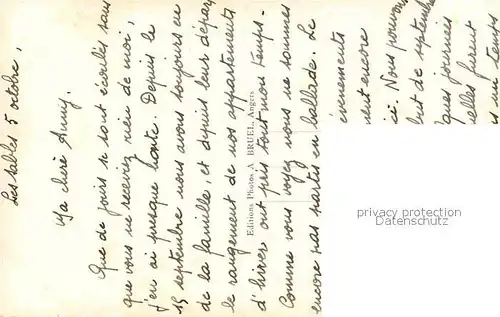 Les Sables 5 octobre,
Ma chère Anny.
Que de jours se sont écoulés sans
que vous ne receviez rien de moi,
j'en ai presque honte. Depuis le
15 septembre nous avons toujours eu
de la famille, et depuis leur départ
le rangement de nos appartements
d'hiver ont pris tout mon temps.
Comme vous voyez nous ne sommes
encore pas partis en ballade. Le
évènements
encore
ici. Nous pouvons
but de septembre
ques journées
elles furent
temps
Editions Photos A BRUEL, Angers
privacy protection
Datenschutz